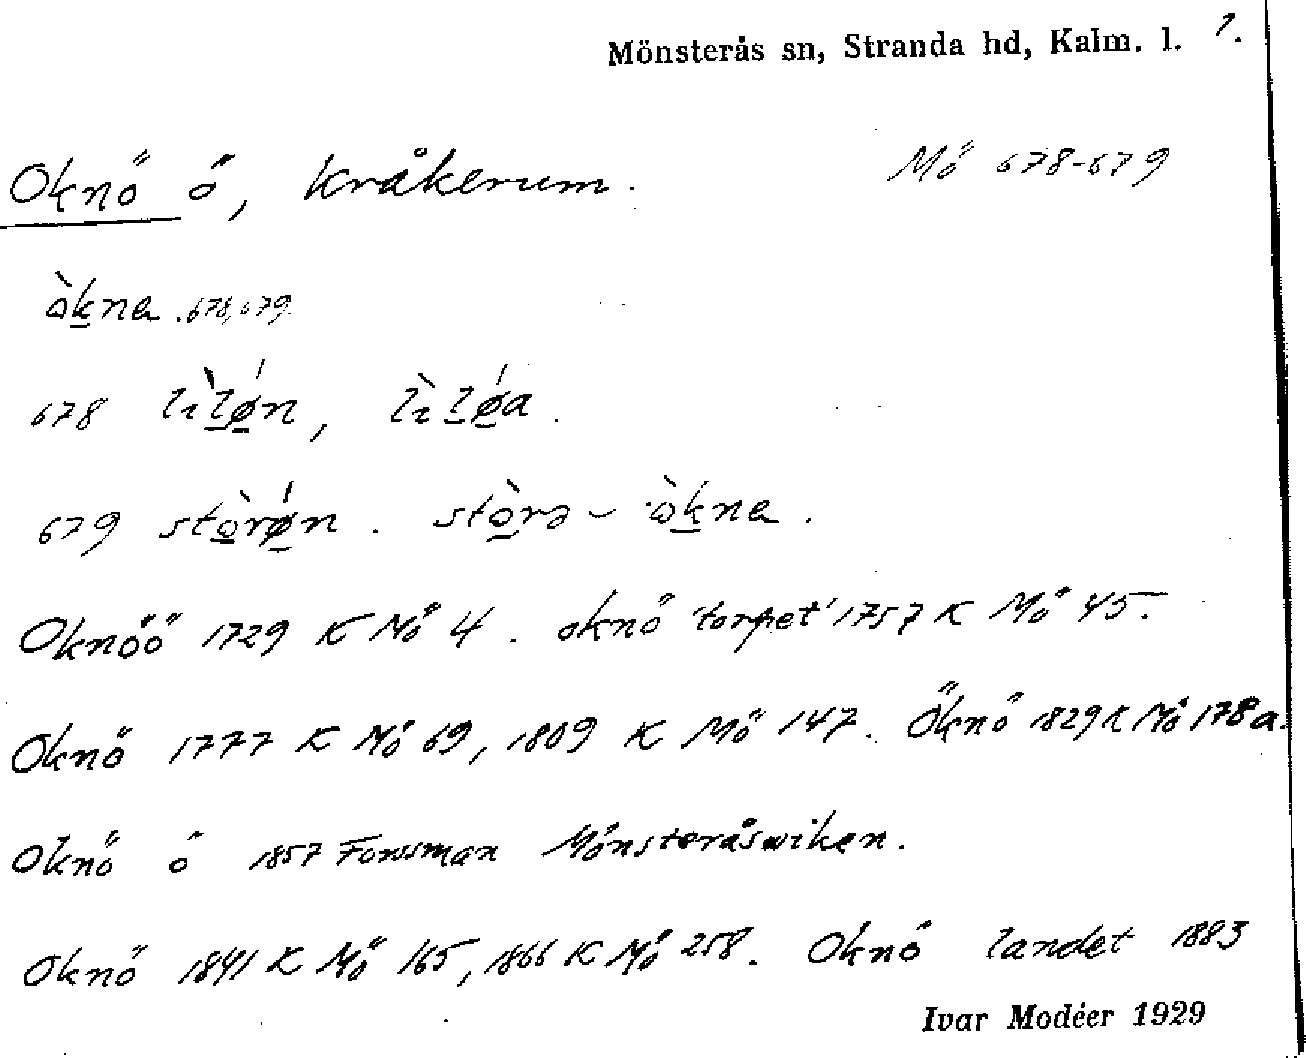 Mönsterås sn, Stranda hd, Kalm. l. 1.
Oknö ö, Kråkerum. Mö 678-679
òkna. 678, 679
678 lìløn, lìløa.
679 stòrøn. stòrə – òkna.
Oknöö 1729 K Mö 4. oknö 'torpet' 1757 K Mö 45.
Oknö 1777 K Mö 69, 1809 K Mö 147. Öknö 1829 K Mö 178a.
Oknö ö 1857 Forssman Mönsteråsviken.
Oknö 1841 K Mö 165, 1866 K Mö 258. Oknö landet 1883
Ivar Modéer 1929